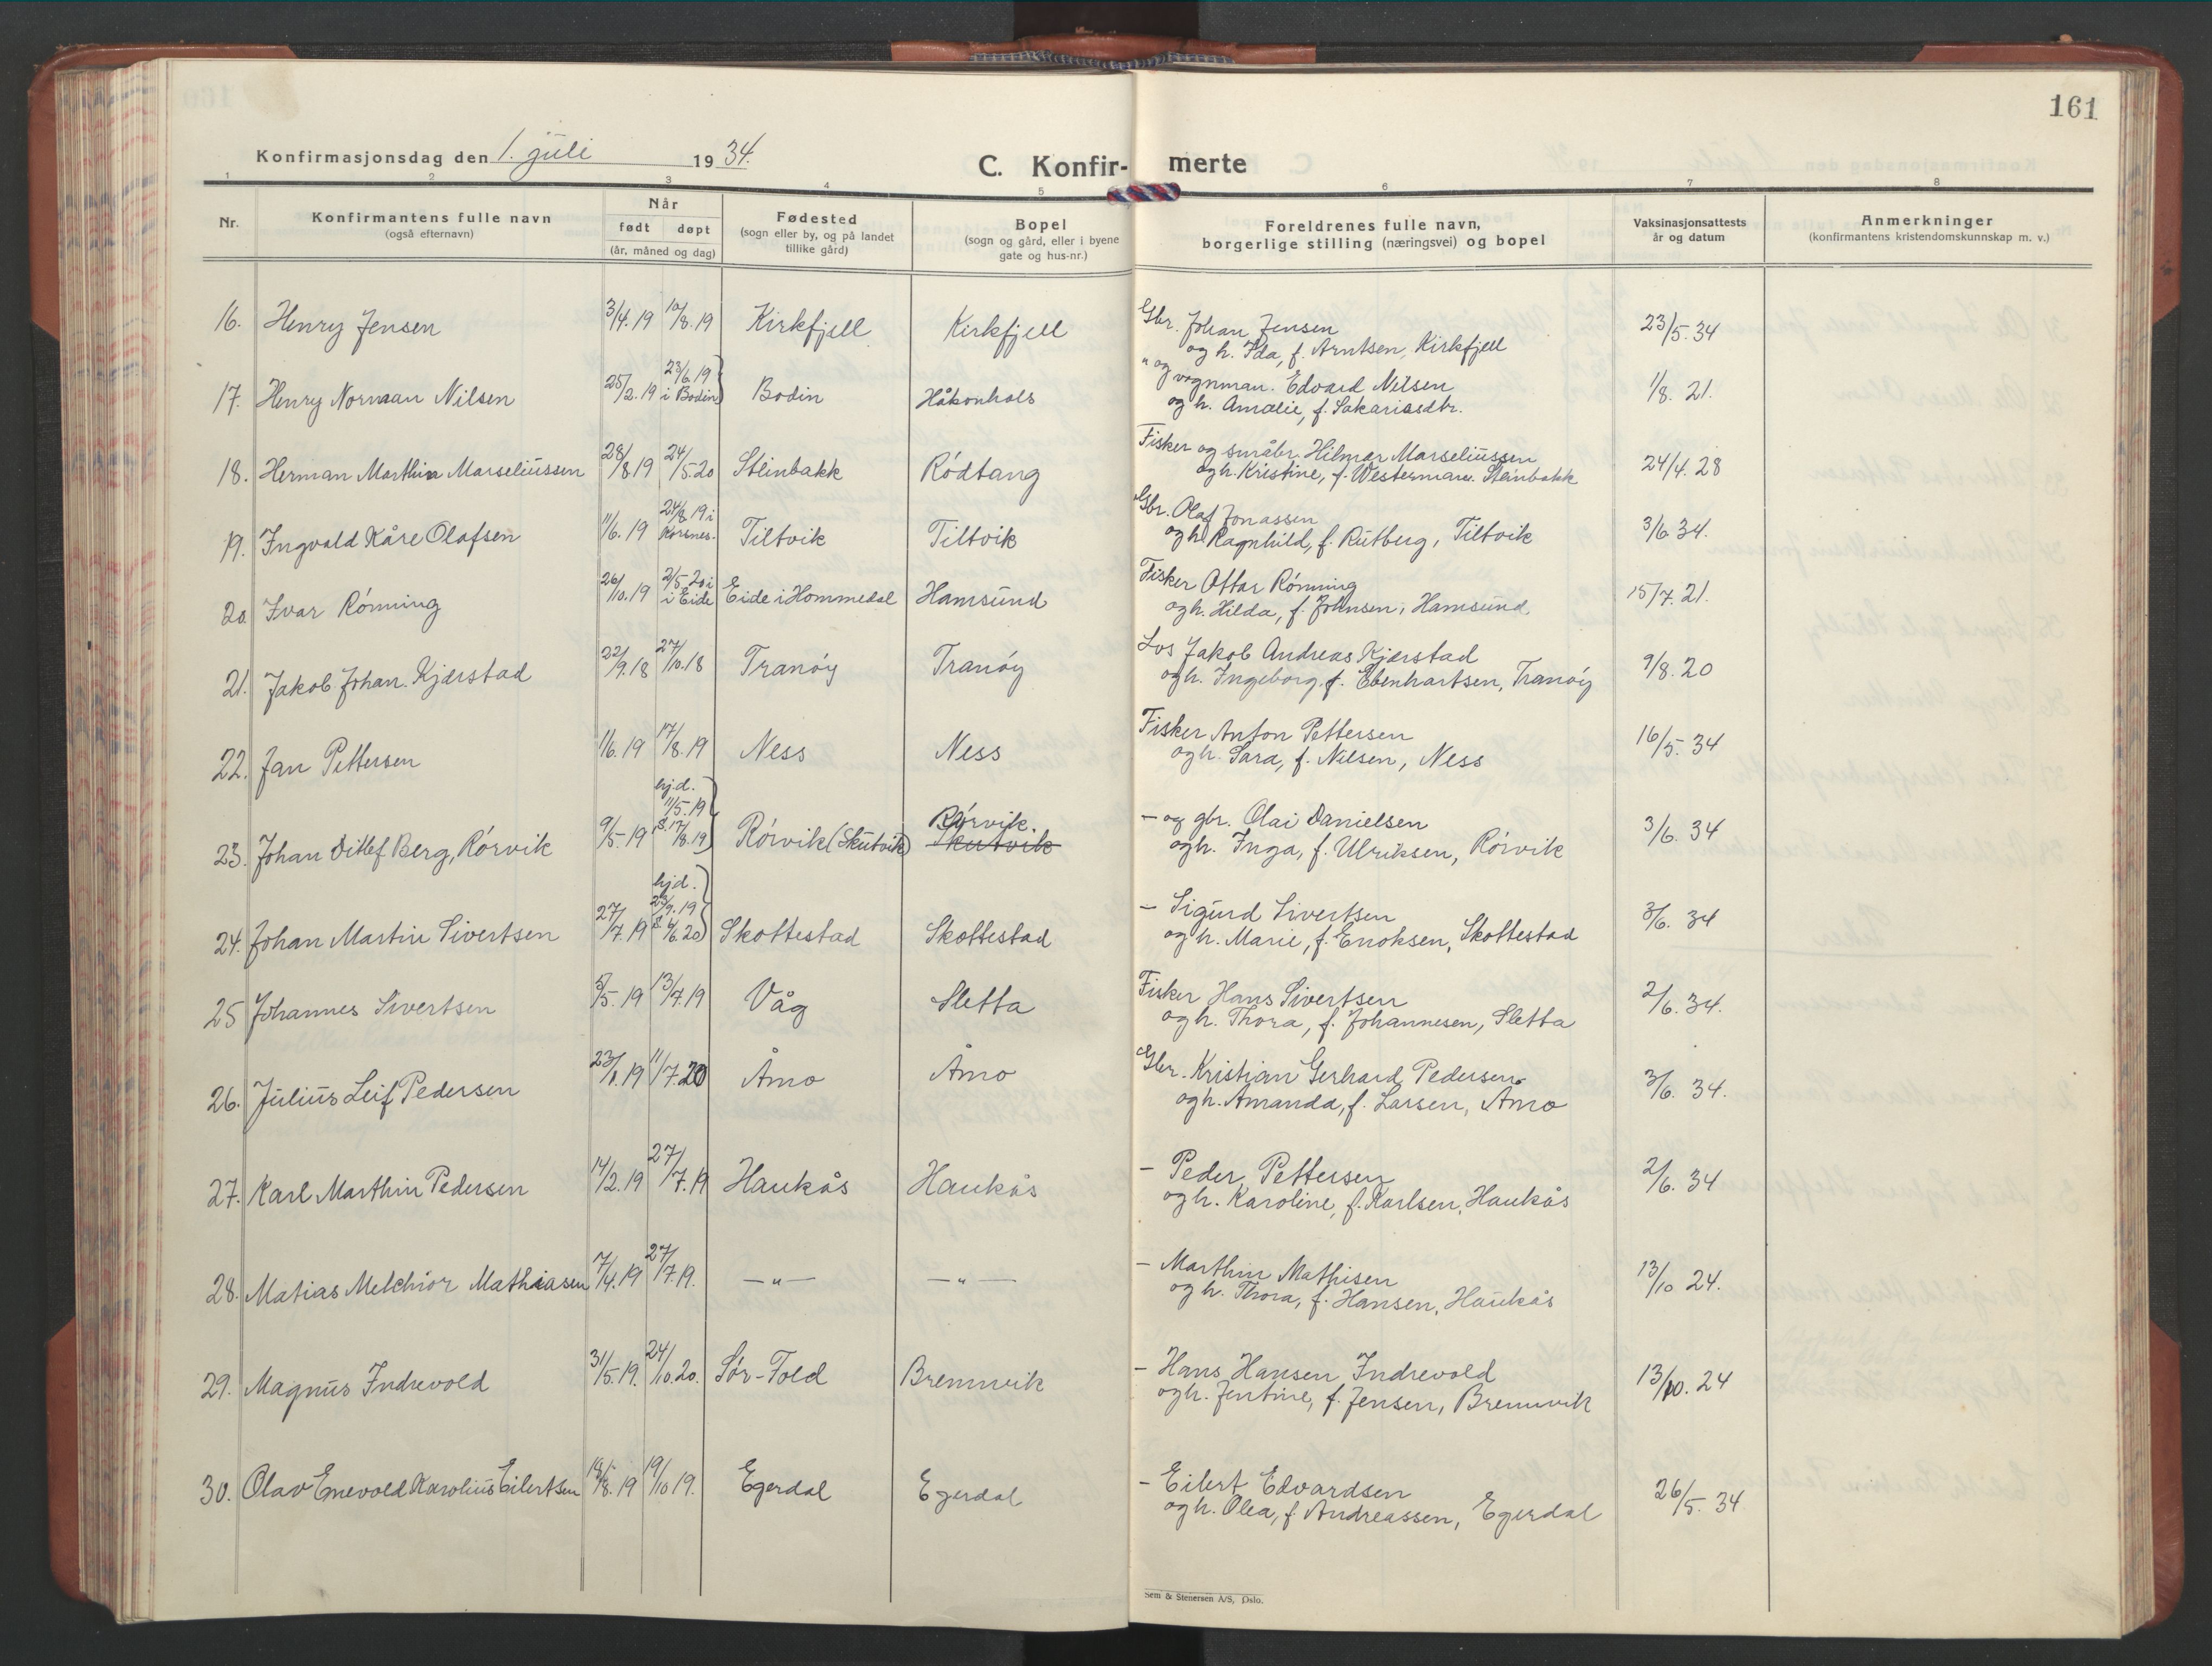 161
Konfirmasjonsdag den 1. juli 1934.
C. Konfir- merte
1 2 3 4 5 6 7 8
Nr.
Konfirmantens fulle navn
(også efternavn)
Når
født døpt
(år, måned og dag)
Fødested
(sogn eller by, og på landet
tillike gård)
Bopel
(sogn og gård, eller i byene
gate og hus-nr.)
Foreldrenes fulle navn,
borgerlige stilling (næringsvei) og bopel
Vaksinasjonsattests
år og datum
Anmerkninger
(konfirmantens kristendomskunnskap m. v.)
16. Henry Jensen 3/4.19 10/8.19 Kirkfjell Kirkfjell Gbr. Johan Jensen 23/5.34
og h. Ida, f. Arntsen, Kirkfjell
23/6.19
17. Henry Norman Nilsen 25/2.19 i Bodin) Bodin Håkonhals " og vognman. Edvard Nilsen 1/8. 21.
og h. Amalie, f. Sakariasdtr.
18. Herman Marthin Marseliussen 28/8 19 24/5.20 Steinbakk Rødtang Fisker og småbr. Hilmar Marseliussen 24/4.28
og h. Kristine, f. Westermann. Steinbakk
24/8.19 i
19. Ingvald Kåre Olafsen 11/6.19 Korsnes. Tiltvik Tiltvik Gbr. Olaf Jonassen 3/6 34.
og h. Ragnhild, f. Rutberg, Tiltvik
2/5-20 i
20. Ivar Rönning 26/10.19 i Eide Eide i Hommedal Hamsund Fisker Ottar Rönning 15/7.21.
og h. Hilda, f. Johnsen, Hamsund.
21. Jakob Johan Kjærstad 22/9.18 27/10.18 Tranöy Tranöy Los Jakob Andreas Kjærstad 9/8.20
og h. Ingeborg f. Ebenhartsen, Tranöy
22. Jan Pettersen 1/6.19 17/8.19 Ness Ness Fisker Anton Pettersen 16/5.34
og h. Sara, f. Nilsen, Ness
hjd.
11/5.19
23. Johan Ditlef Berg, Rörvik 9/5-19 s. 17/8.19) Rörvik (Skutvik) Rörvik. Skutvik — og gbr. Olai Danielsen 3/6.34
og h. Inga, f. Ulriksen, Rörvik
hjd.
/9.19
24. Johan Martin Sivertsen 27/7.19 /6.20) Skottestad Skottestad — Sigurd Sivertsen 3/6. 34
og h. Marie, f. Enoksen, Skottestad
25 Johannes Sivertsen 5/5.19 13/7.19 Våg Sletta Fisker Hans Sivertsen 2/6.34.
og h. Thora, f. Johannesen, Sletta
26. Julius Leif Pedersen 23/1.19 11/7.20 Åmo Åmo Gbr. Kristian Gerhard Pedersen 3/6. 34.
og h. Amanda, f. Larsen, Åmo
27. Karl Marthin Pedersen 14/2.19 27/7.19 Haukås Haukås — Peder Pettersen 2/6. 34
og h. Karoline, f. Karlsen, Haukås
28. Matias Melchior Mathiasen 7/4.19 27/7.19. —"— —"— — Marthin Mathisen 13/10 24.
og h. Thora, f. Hansen, Haukås
29. Magnus Indrevold 31/5.19. 24/10.20. Sör-Fold Bremnvik — Hans Hansen Indrevold 13/10.24
og h. Jentine, f. Jensen, Bremnvik
30. Olav Enevold Karolius Eilertsen 18/8.19 19/10 19. Egerdal Egerdal — Eilert Edvardsen 26/5.34
og h. Olea, f. Andreassen, Egerdal
Sem & Stenersen A/S, Oslo.